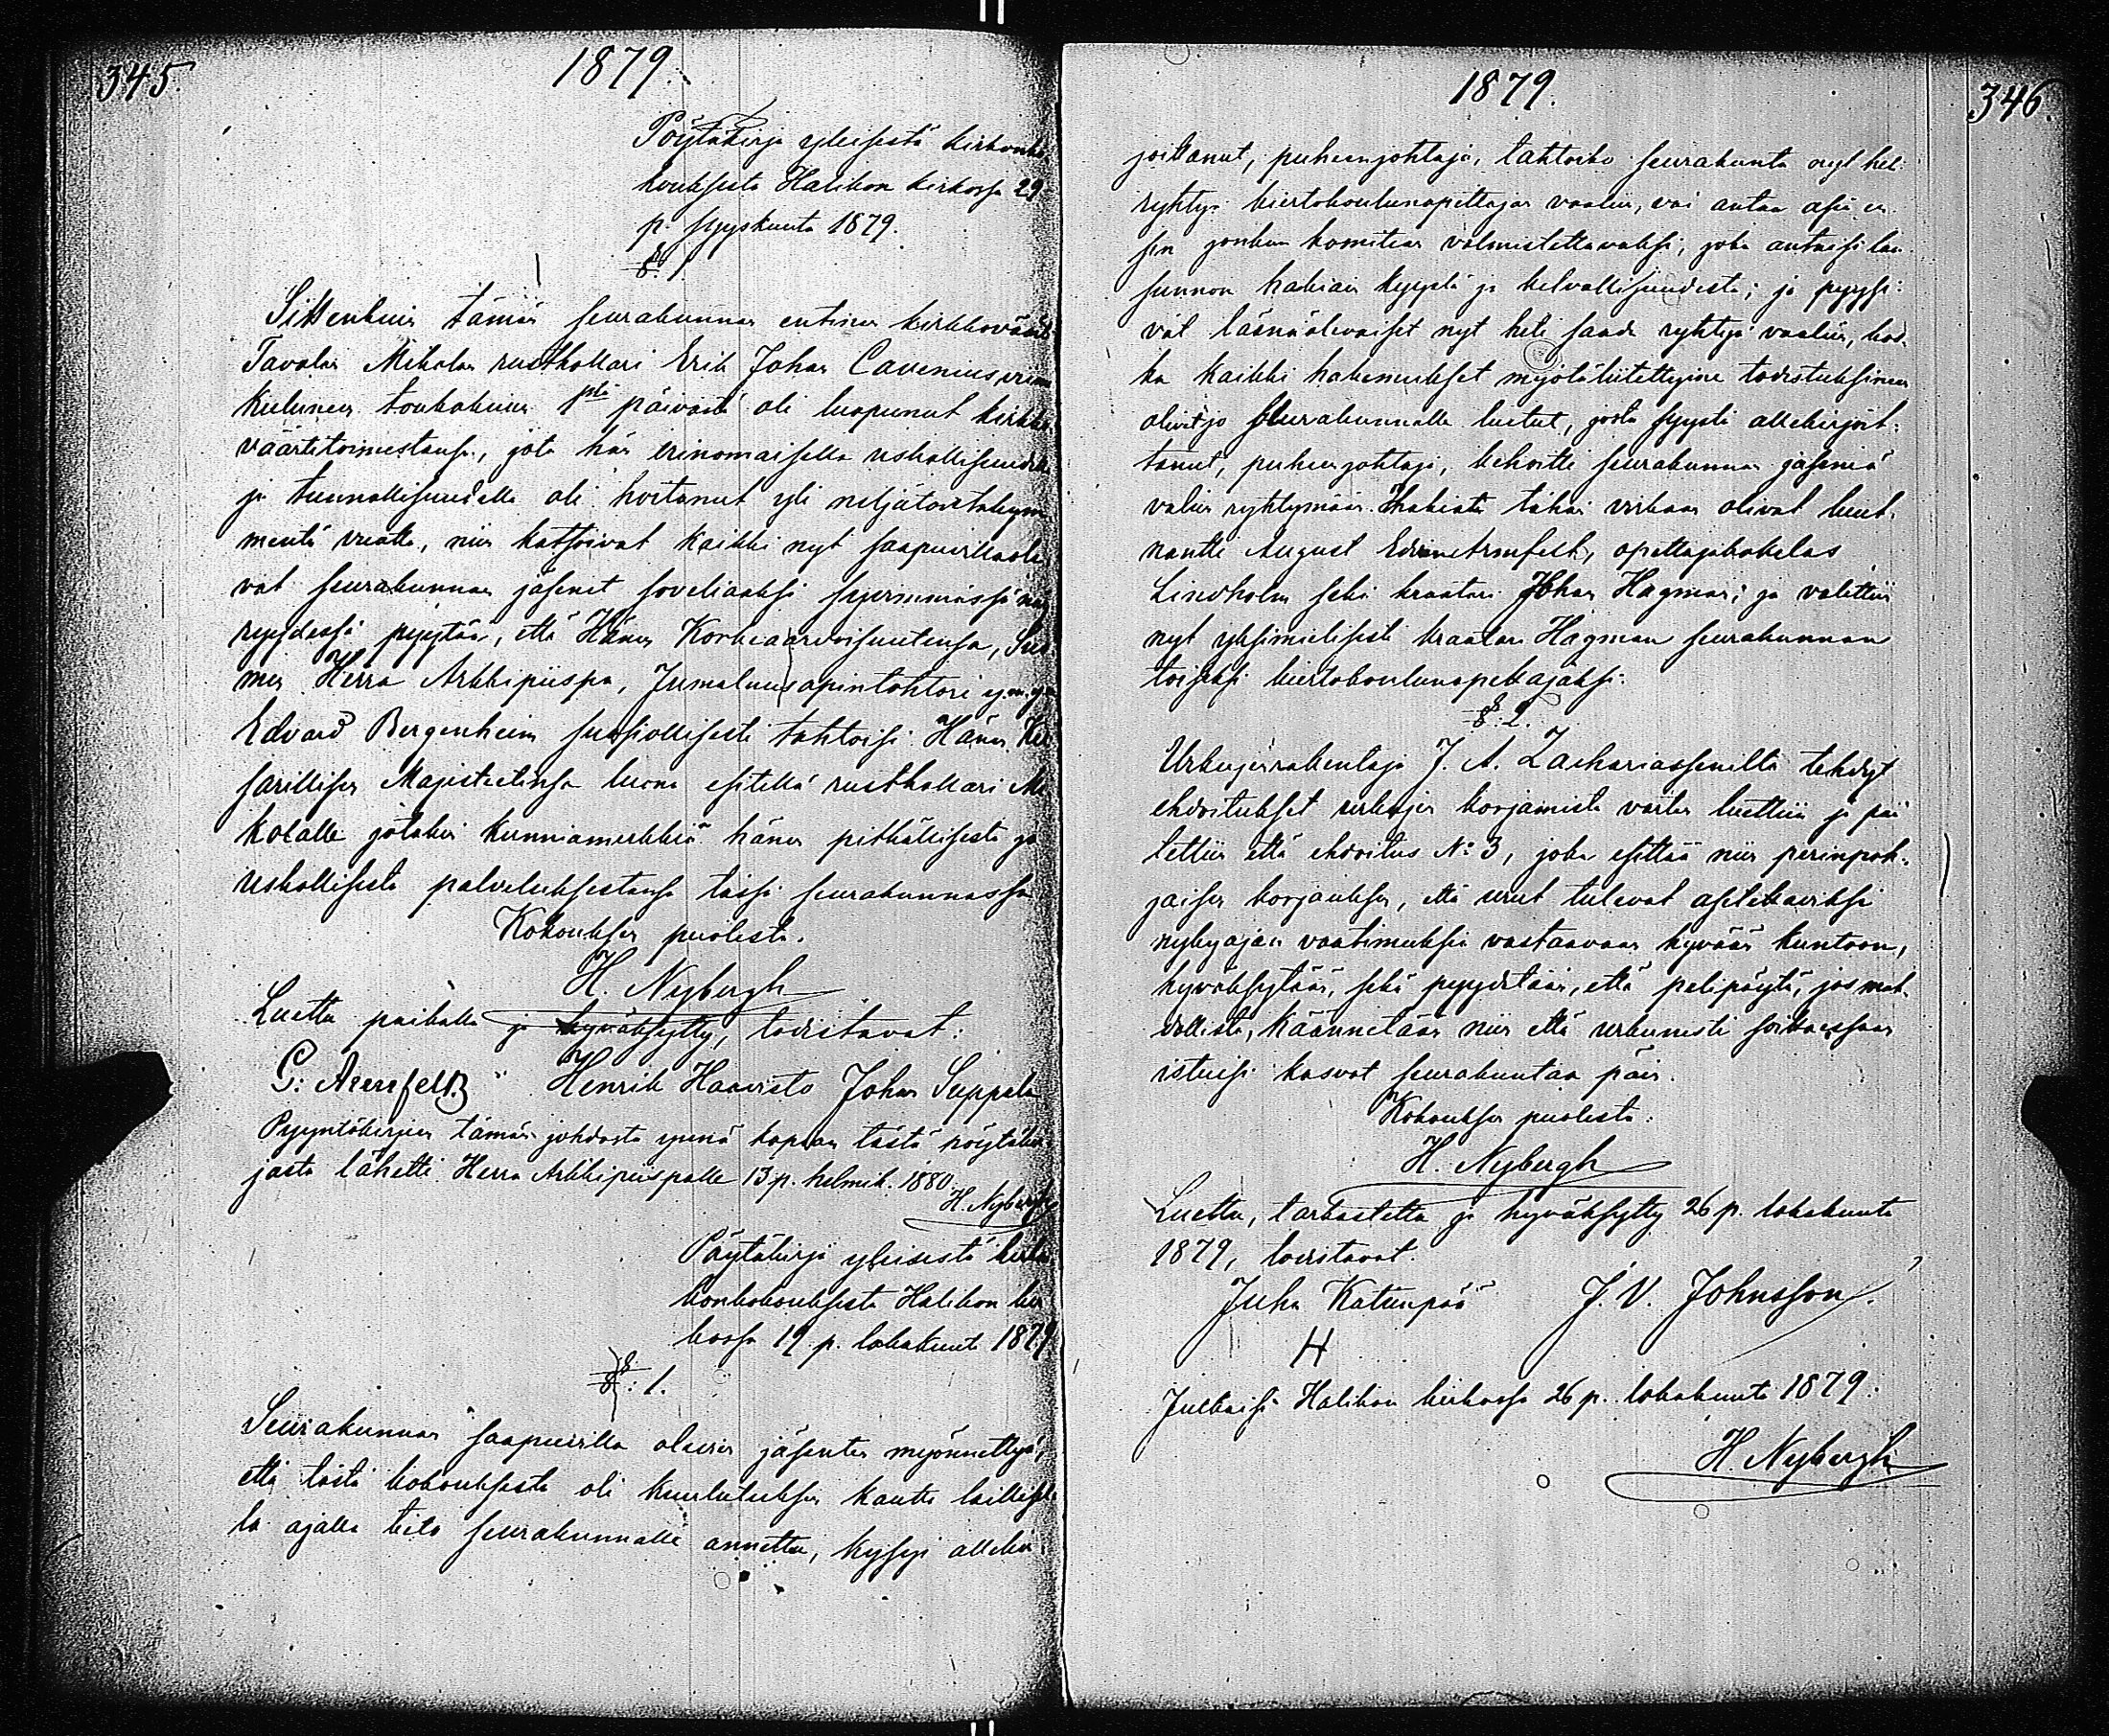 345.
1879.
Pöytäkirja yleisestä kirkonko
kouksesta Halikon kirkossa 29
p. syyskuuta 1879.
§. 1.
Sittenkuin tämän seurakunnan entinen kirkkoväärti
Tavolan Mikolan rusthollari Erik Johan Cavenius viime
kuluneen toukokuun 1stä päivästä oli luopunut kirkko
väärtitoimestansa, jota hän erinomaisella uskollisuudella
ja tunnollisuudella oli hoitanut yli neljätoistakym
mentä vuotta, niin katsoivat kaikki nyt saapuvillaole
vat seurakunnan jäsenet soveliaaksi syvimmässä nöy
ryydessä pyytää, että Hänen Korkeaarvoisuutensa, Suo
men Herra Arkkipiispa, Jumaluusopintohtori y.m. y.m
Edvard Bergenheim suosiollisesti tahtoisi Hänen Kei
sarillisen Majesteetinsa luona esitellä rusthollari Mi
kolalle jotakin kunniamerkkiä hänen pitkällisestä ja
uskollisesta palveluksestansa tässä seurakunnassa
Kokouksen puolesta.
H. Nybergh
Luettu paikalla ja hyväksytty, todistavat:
G: Aminoff Henrik Haavisto Johan Suppala
Pyyntökirjan tämän johdosta ynnä kopian tästä pöytäkir
jasta lähetti Herra Arkkipiispalle 13 p. helmik. 1880.
H. Nybergh
Pöytäkirja yleisestä kirk
konkokouksesta Halikon kir
kossa 19 p. lokakuuta 1879
§: 1.
Seurakunnan saapuvilla olevien jäsenten myönnettyä,
että tästä kokouksesta oli kuulutuksen kautta laillisel
la ajalla tieto seurakunnalle annettu, kysyi allekir
346.
1879.
joittanut, puheenjohtaja, tahtoiko seurakunta nyt heti
ryhtyä kiertokoulunopettajan vaaliin, vai antaa asia en
sin jonkun komitean valmistettavaksi, joka antaisi lau
sunnon hakiain kyvystä ja kelvollisuudesta; ja pyysi
vät läsnäolevaiset nyt heti saada ryhtyä vaaliin, kos
ka kaikki hakemukset myötäliitettyine todistuksineen
olivat jo seurakunnalle luetut, josta syystä allekirjoit
tanut, puheenjohtaja, kehoitti seurakunnan jäseniä
valiin ryhtymään. Hakiat tähän virkaan olivat luut
nantti August Edvin Armfelt, opettajakokelas
Lindholm sekä kraatari Johan Hagman; ja valittiin
nyt yksimielisesti kraatari Hagman seurakunnan
toiseksi kiertokoulunopettajaksi.
§: 2.
Urkujenrakentaja J. A. Zachariassenilta tehdyt
ehdoitukset urkujen korjamista varten luettiin ja pää
tettiin että ehdoitus No 3, joka esittää niin perinpoh
jaisen korjauksen, että urut tulevat asetettaviksi
nykyajan vaatimuksia vastaavaan hyvään kuntoon,
hyväksytään, sekä pyydetään, että pelipöytä, jos mah
dollista, käännetään niin että urkunisti soittaissaan
istuisi kasvot seurakuntaa päin.
Kokouksen puolesta:
H. Nybergh
Luettu, tarkastettu ja hyväksytty 26 p. lokakuuta
1879, todistavat.
Juha Katunpää J. V. Johnsson
H
Julkaisi Halikon kirkossa 26 p. lokakuuta 1879:
H Nybergh